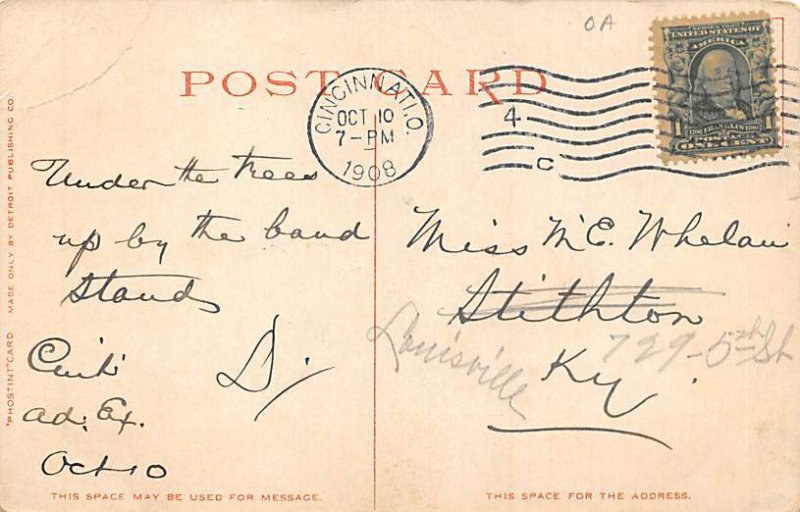 OA
POST CARD
CINCINNATI, O.
OCT 10
7-PM
1908
4
C
UNITED STATES OF
AMERICA
1
FRANKLIN
ONE CENT
Under the trees
up by the band
stands
Cinti
Ad. Ex.
Oct 10
D.
Miss M. E. Whelan
Stithton
Louisville 729-5th St
Ky.
"PHOSTINT" CARD MADE ONLY BY DETROIT PUBLISHING CO
THIS SPACE MAY BE USED FOR MESSAGE.
THIS SPACE FOR THE ADDRESS.